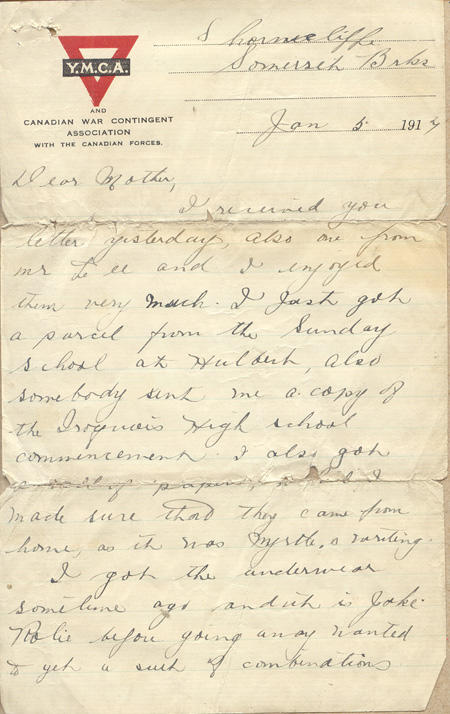 Y.M.C.A.
AND
CANADIAN WAR CONTINGENT
ASSOCIATION
WITH THE CANADIAN FORCES.
Shorncliffe
Somerset Brks
Jan 5 1917
Dear Mother,
I received you
letter yesterday, also one from
mr Lee and I enjoyed
them very much. I Just got
a parcel from the Sunday
school at Hulbert, also
somebody sent me a copy of
the Iroquois High school
commencement. I also got
a roll of papers, I
made sure that they came from
home, as it was Myrtle,s writing.
I got the underwear
sometime ago and it is Joke.
before going away wanted
to get a suit of combinations